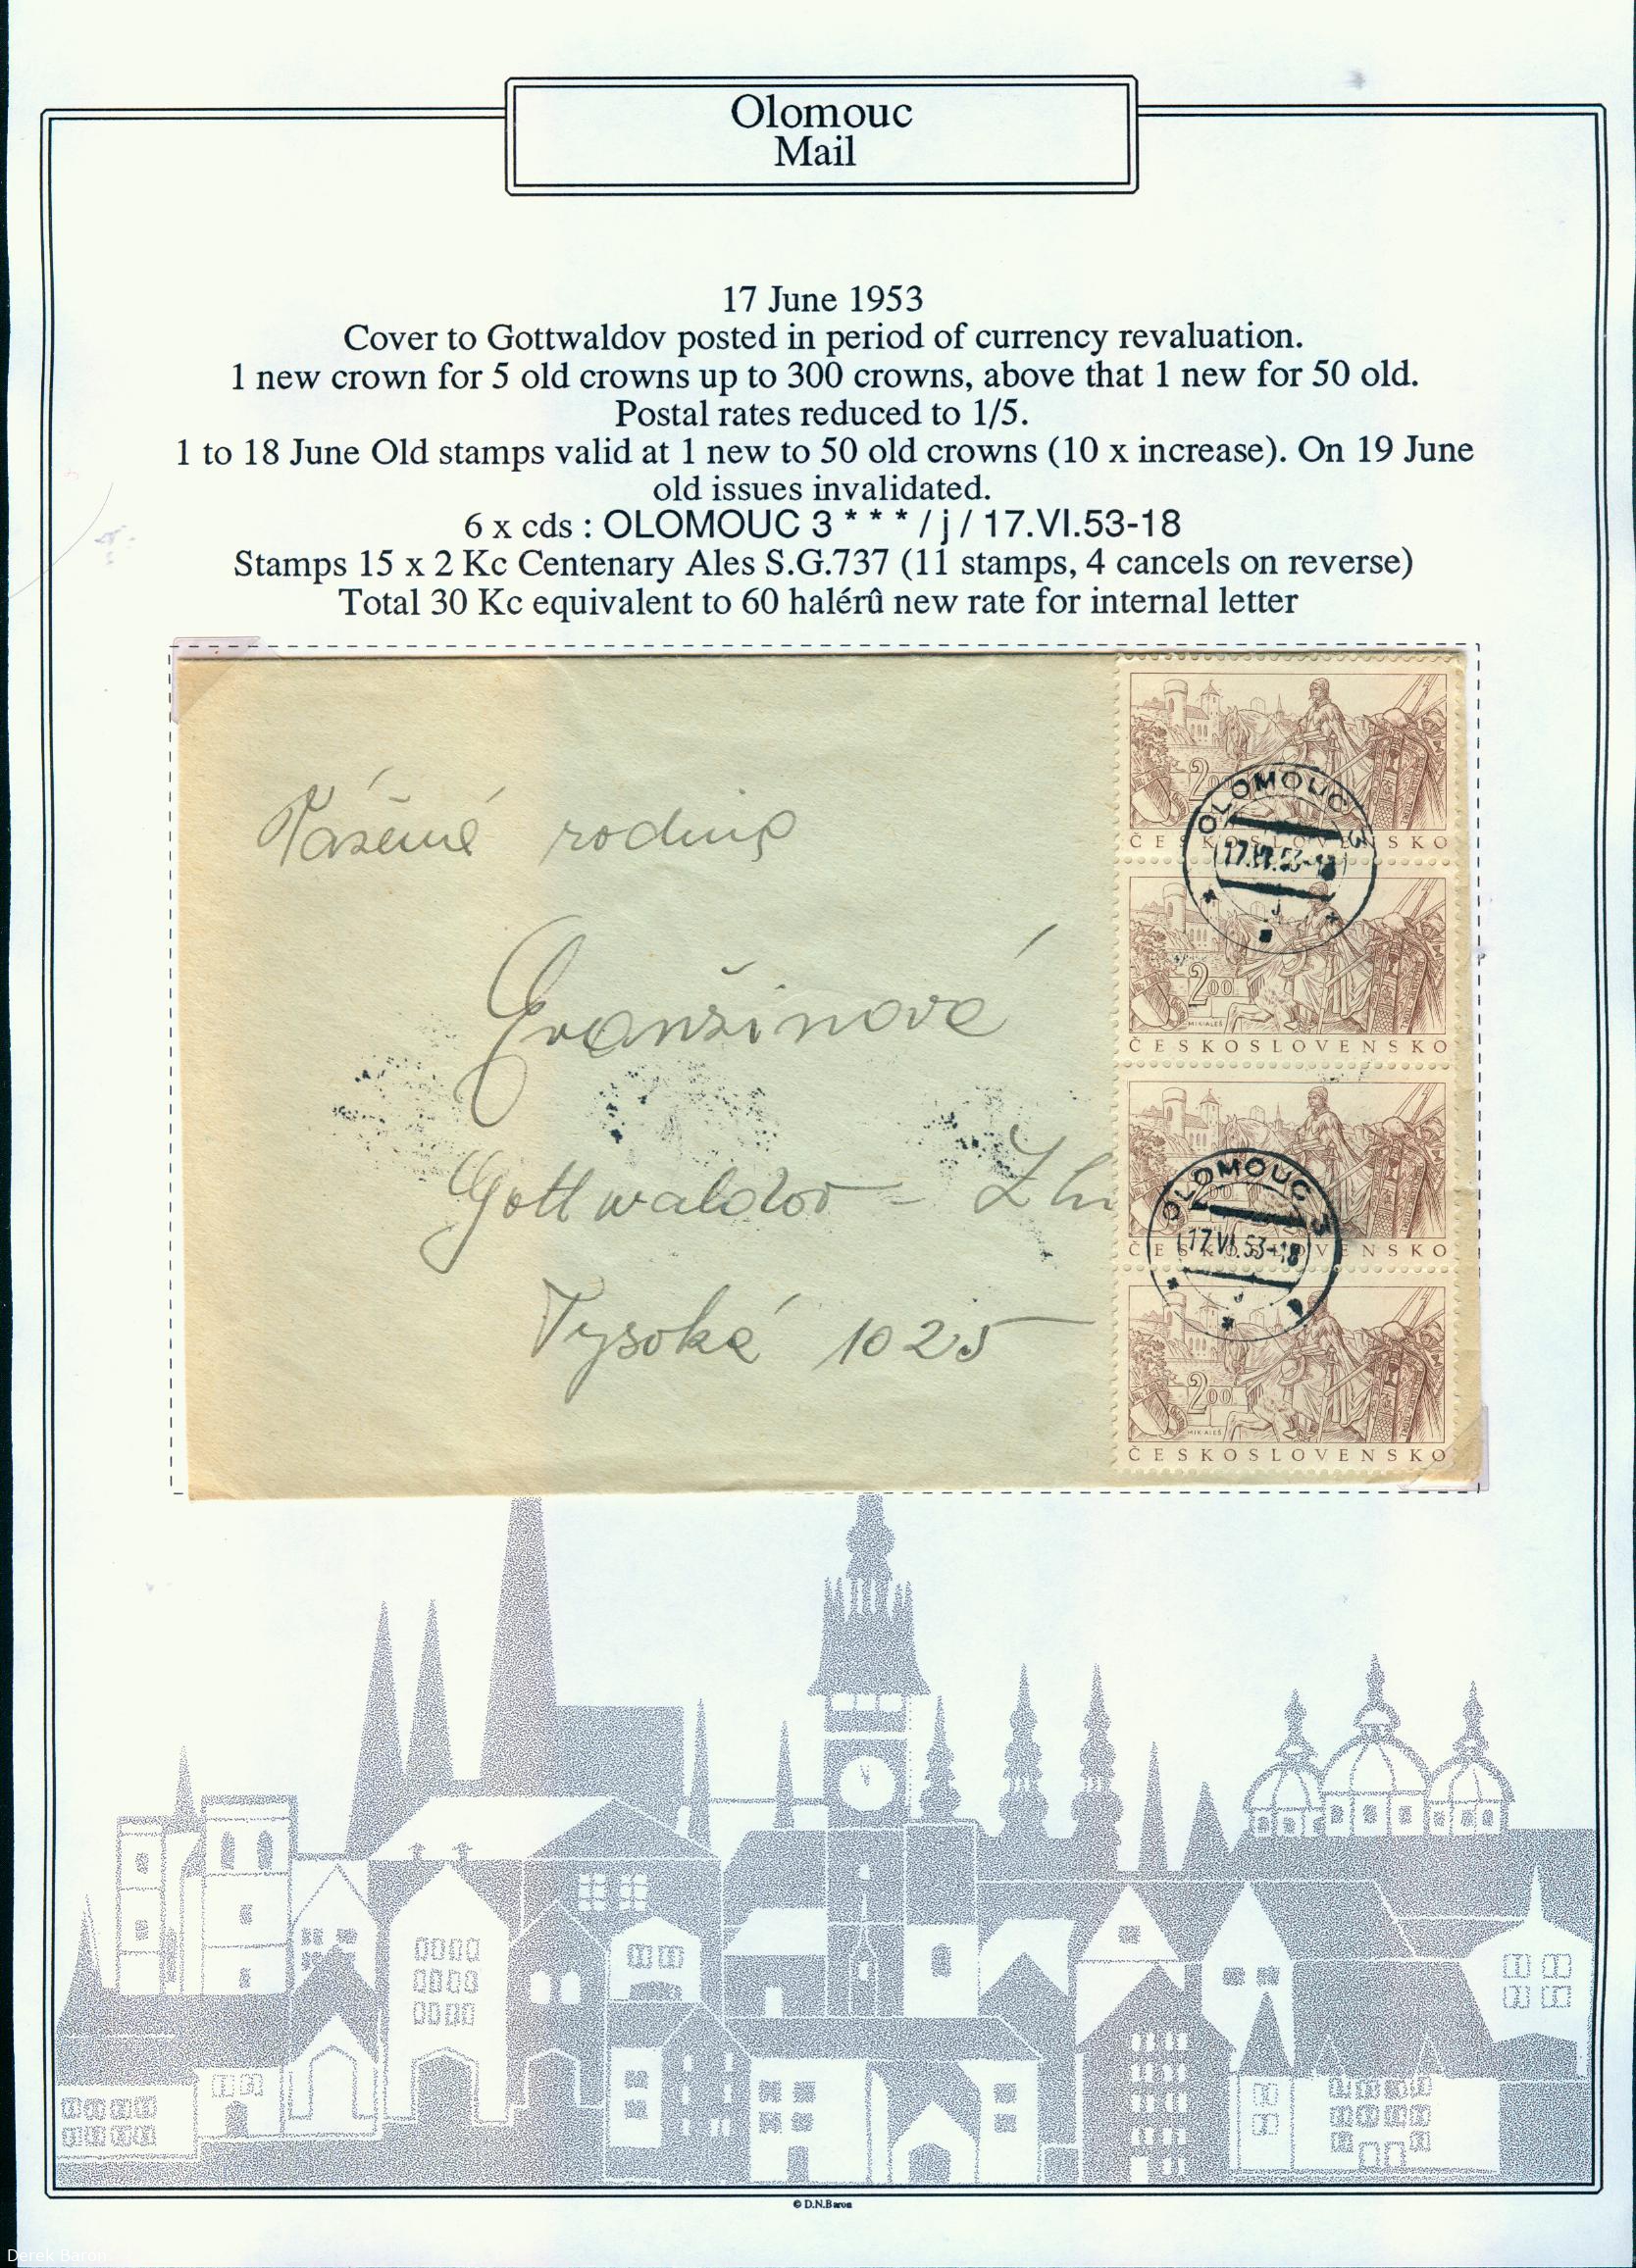 Olomouc
Mail
17 June 1953
Cover to Gottwaldov posted in period of currency revaluation.
1 new crown for 5 old crowns up to 300 crowns, above that 1 new for 50 old.
Postal rates reduced to 1/5.
1 to 18 June Old stamps valid at 1 new to 50 old crowns (10 x increase). On 19 June
old issues invalidated.
6 x cds : OLOMOUC 3 * * * / j / 17.VI.53-18
Stamps 15 x 2 Kc Centenary Ales S.G.737 (11 stamps, 4 cancels on reverse)
Total 30 Kc equivalent to 60 halérû new rate for internal letter
Vážená rodina
Gottwaldov - Zlín
Vysoká 1025
200
ČESKOSLOVENSKO
OLOMOUC 3
17.VI.53-18
J
200
MIK.ALEŠ
ČESKOSLOVENSKO
200
ČESKOSLOVENSKO
OLOMOUC 3
17.VI.53-18
J
200
MIK.ALEŠ
ČESKOSLOVENSKO
© D.N.Baron
Derek Baron